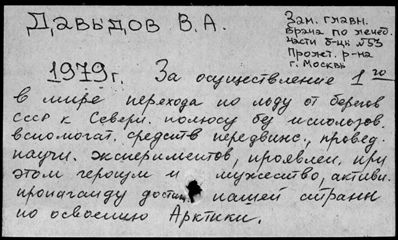 Давыдов В.А.
Зам. главн.
врача по лечеб.
части б-цы №53
Пролет. р-на
г. Москвы
1979 г. За осуществление 1го
в мире перехода по льду от берегов
СССР к Северн. полюсу без использов.
вспомогат. средств передвиж., провед.
научн. экспериментов, проявлен. при
этом героизм и мужество, активн.
пропаганду достиж. нашей страны
по освоению Арктики.